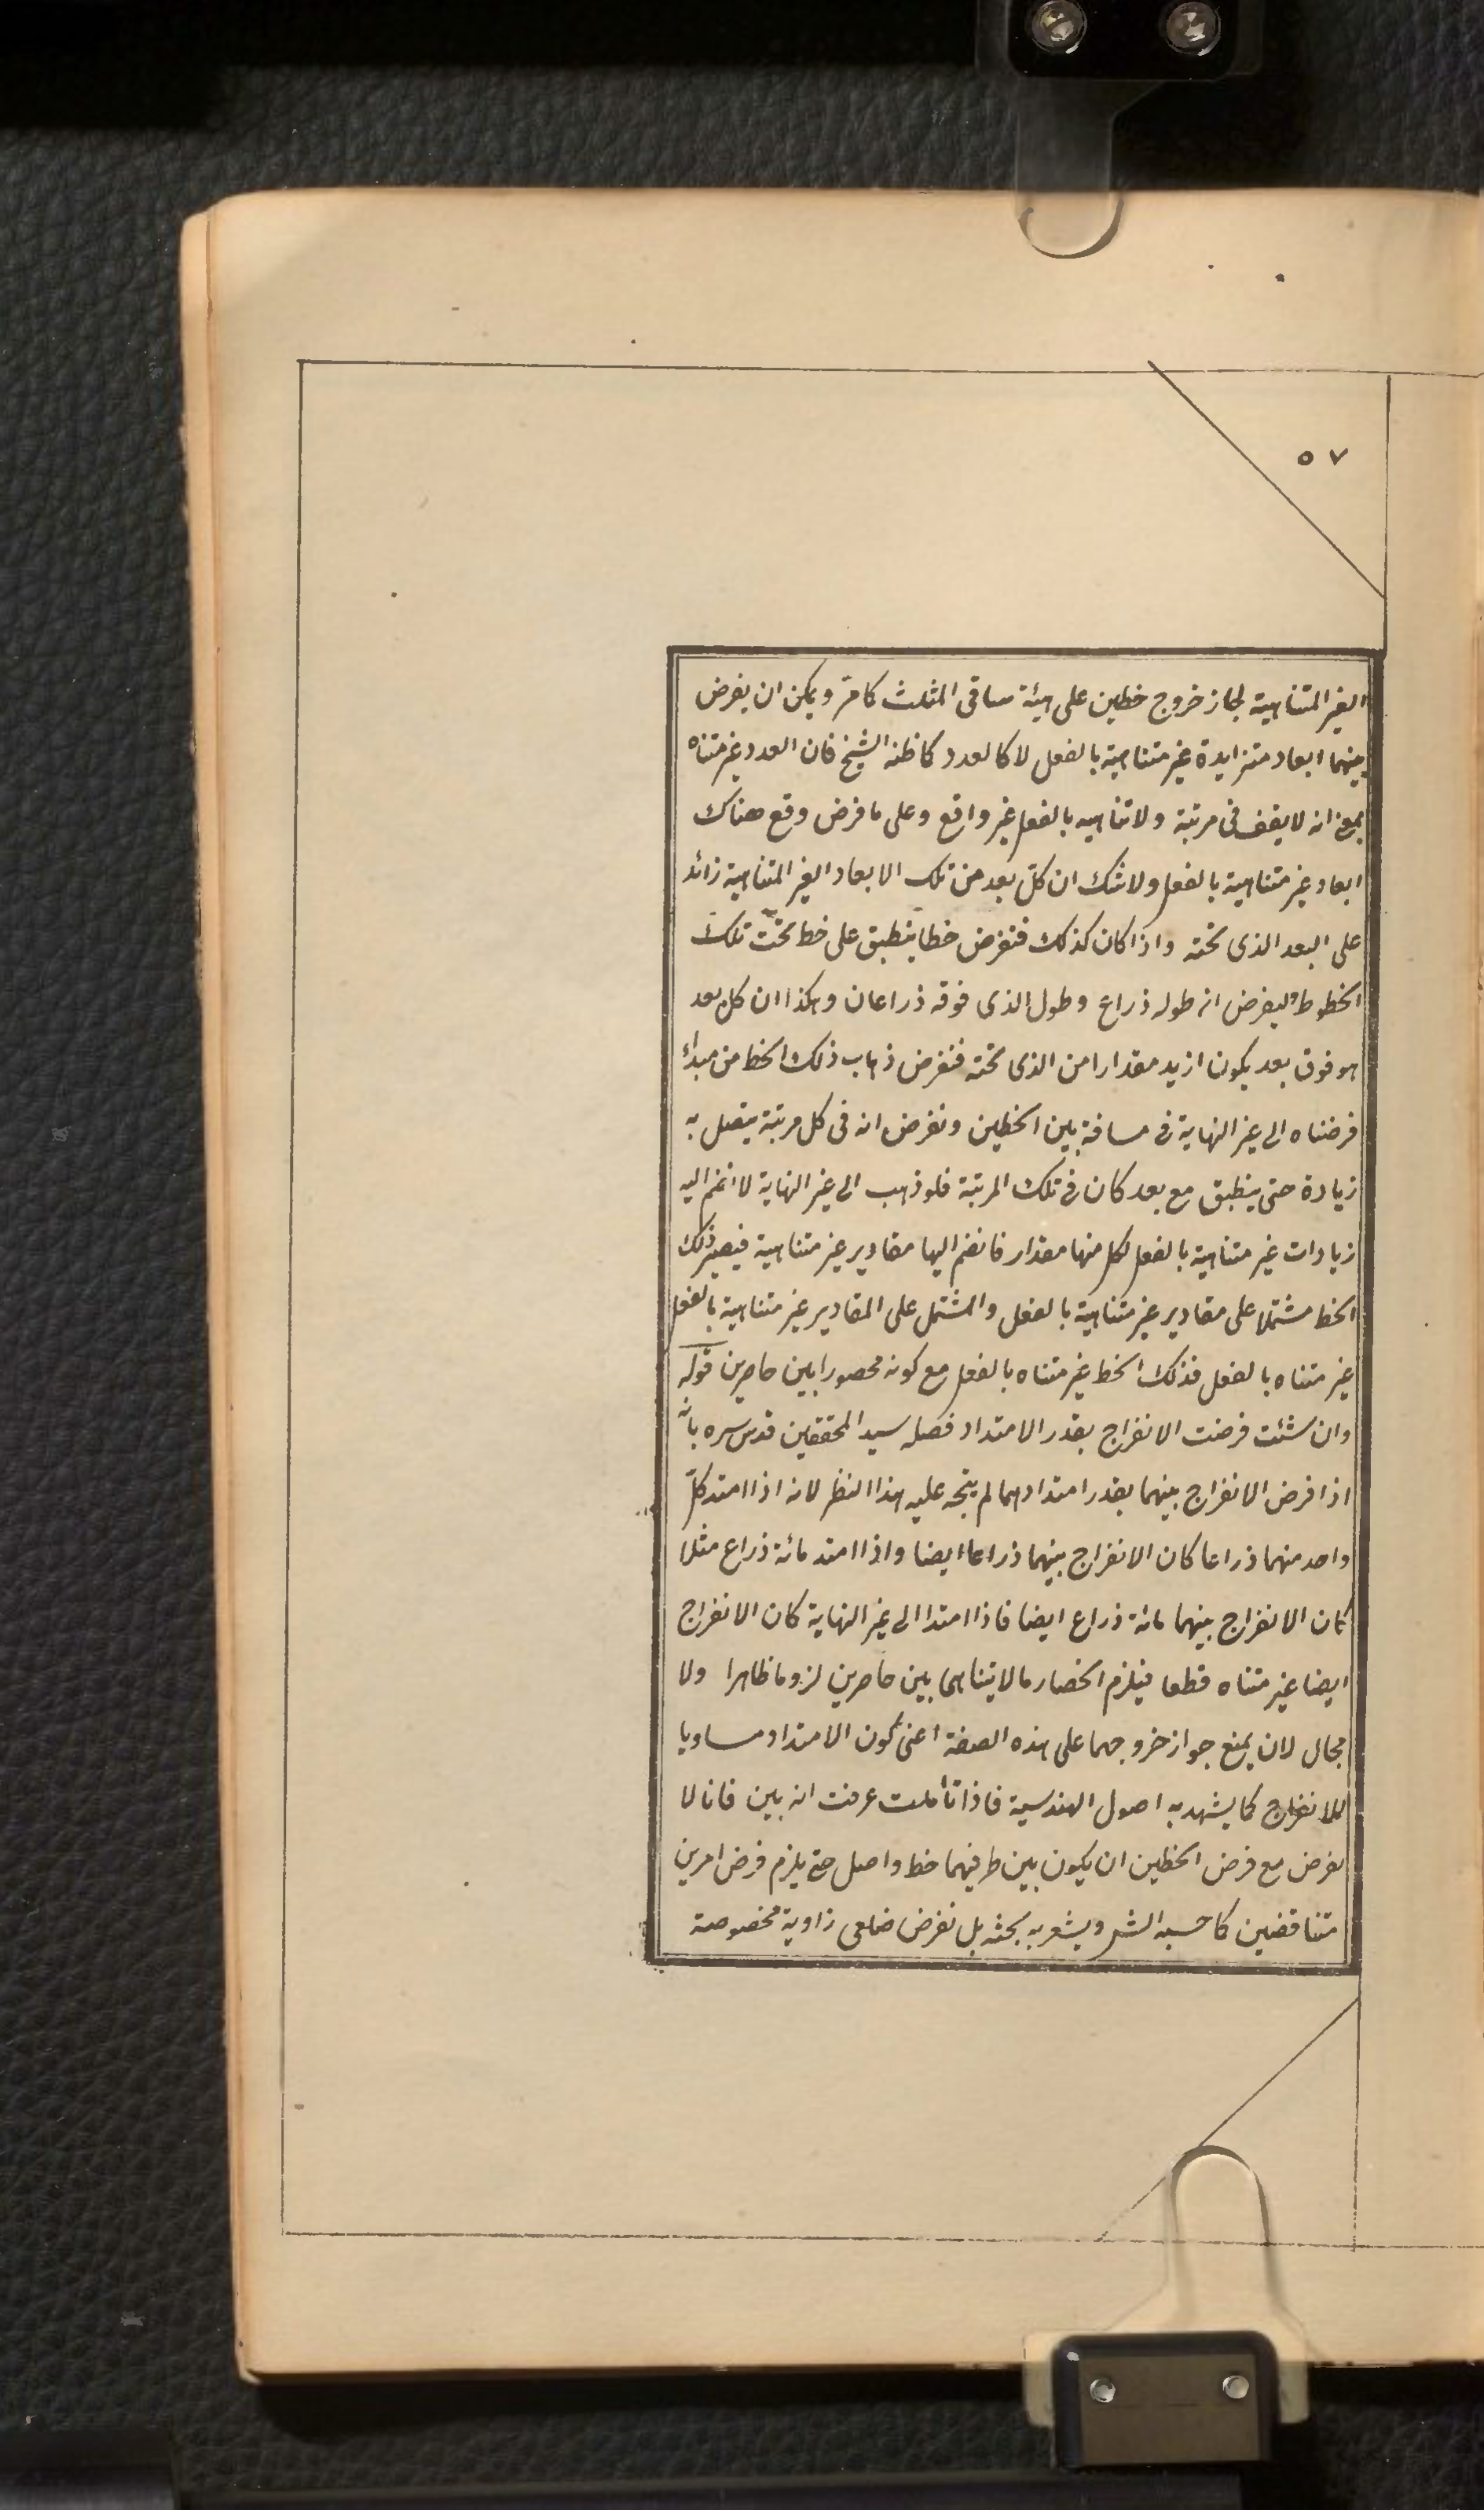 ٥٧
الغير المتناهية لجاز خروج خطين على هيئة ساقى المثلث كما مرّ ويمكن ان يفرض
بينهما ابعاد متزايدة غير متناهية بالفعل لا كالعدد كما ظنه الشيخ فان العدد غير متناه
بمعنى انه لا يقف فى مرتبة ولا تناهيه بالفعل غير واقع وعلى ما فرض وقع هناك
ابعاد غير متناهية بالفعل ولا شك ان كلّ بعد من تلك الابعاد الغير المتناهية زائد
على البعد الذى تحته واذا كان كذلك فنفرض خطا ينطبق على خط تحت تلك
الخطوط وليفرض انه طوله ذراع وطول الذى فوقه ذراعان وهكذا ان كل بعد
هو فوق بعد يكون ازيد مقدارا من الذى تحته فنفرض ذهاب ذلك الخط من مبدأ
فرضناه الى غير النهاية فى مسافة بين الخطين ونفرض انه فى كل مرتبة يتصل به
زيادة حتى ينطبق مع بعد كان فى تلك المرتبة فلو ذهب الى غير النهاية لانضم اليه
زيادات غير متناهية بالفعل لكل منها مقدار فانضم اليها مقادير غير متناهية فيصير ذلك
الخط مشتملا على مقادير غير متناهية بالفعل والمشتمل على المقادير غير متناهية بالفعل
غير متناه بالفعل فذلك الخط غير متناه بالفعل مع كونه محصورا بين حاصرين قوله
وان شئت فرضت الانفراج بقدر الامتداد فصله سيد المحققين قدس سره بانّه
اذا فرض الانفراج بينهما بقدر امتدادهما لم يتجه عليه هذا النظر لانه اذا امتد كلّ
واحد منهما ذراعا كان الانفراج بينهما ذراعا ايضا واذا امتد مائة ذراع مثلا
كان الانفراج بينهما مائة ذراع ايضا فاذا امتدا الى غير النهاية كان الانفراج
ايضا غير متناه قطعا فيلزم انحصار ما لا يتناهى بين حاصرين لزوما ظاهرا ولا
مجال لان يمنع جواز خروجهما على هذه الصفة اعنى كون الامتداد مساويا
للانفراج كما يشهد به اصول الهندسية فاذا تأملت عرفت انه بين فانا لا
نفرض مع فرض الخطين ان يكون بين طرفيهما خط واصل حتى يلزم فرض امرين
متناقضين كما حسبه الش ويشعر به بحثه بل نفرض ضلعى زاوية مخصوصة